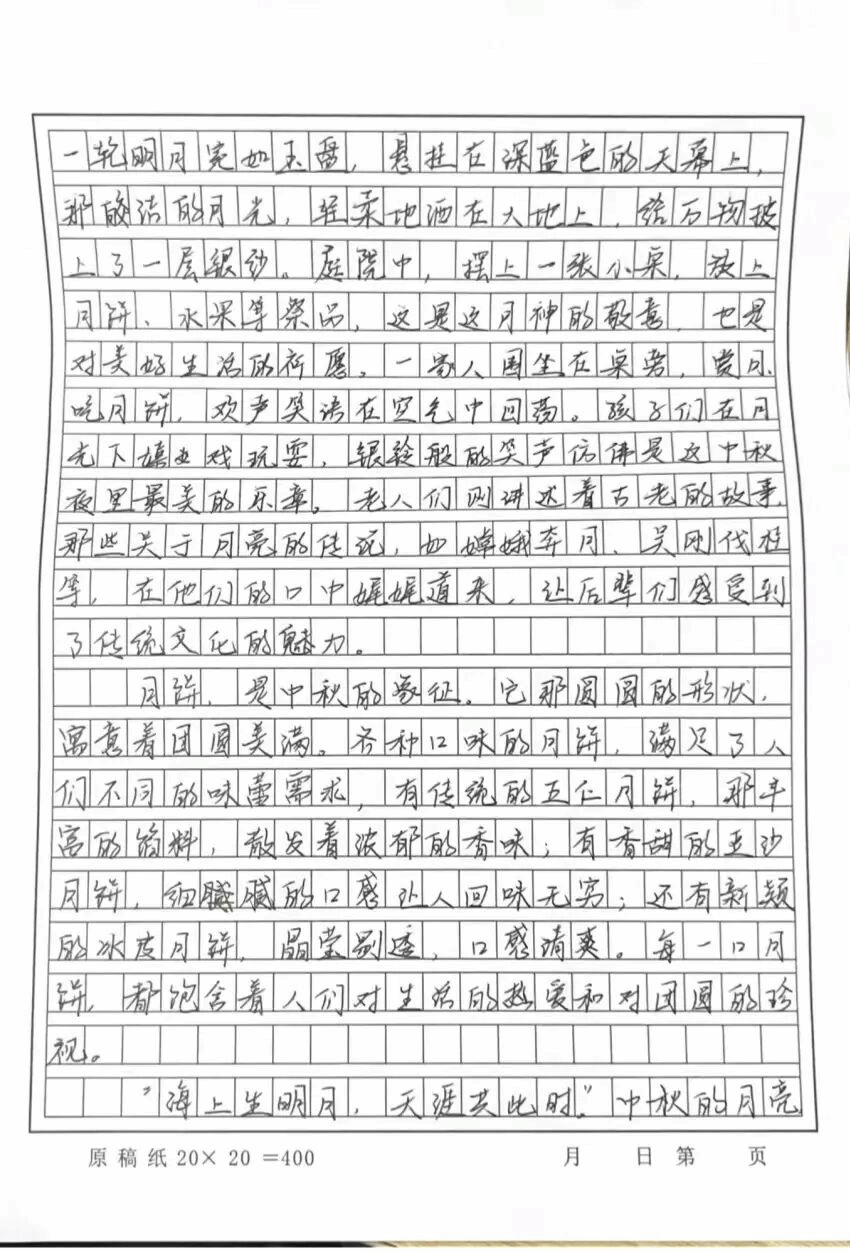 一轮明月宛如玉盘，悬挂在深蓝色的天幕上，
那皎洁的月光，轻柔地洒在大地上，给万物披
上了一层银纱。庭院中，摆上一张小桌，放上
月饼、水果等祭品，这是这月神的敬意，也是
对美好生活的祈愿。一家人围坐在桌旁，赏月
吃月饼，欢声笑语在空气中回荡。孩子们在月
光下嬉戏玩耍，银铃般的笑声仿佛是这中秋
夜里最美的乐章。老人们则讲述着古老的故事，
那些关于月亮的传说，如嫦娥奔月、吴刚伐桂
等，在他们的口中娓娓道来，让后辈们感受到
了传统文化的魅力。
月饼，是中秋的象征。它那圆圆的形状，
寓意着团圆美满。各种口味的月饼，满足了人
们不同的味蕾需求，有传统的五仁月饼，那丰
富的馅料，散发着浓郁的香味；有香甜的豆沙
月饼，细腻腻的口感让人回味无穷；还有新颖
的冰皮月饼，晶莹剔透，口感清爽。每一口月
饼，都饱含着人们对生活的热爱和对团圆的珍
视。
“海上生明月，天涯共此时。”中秋的月亮
原稿纸20×20=400 月 日 第 页